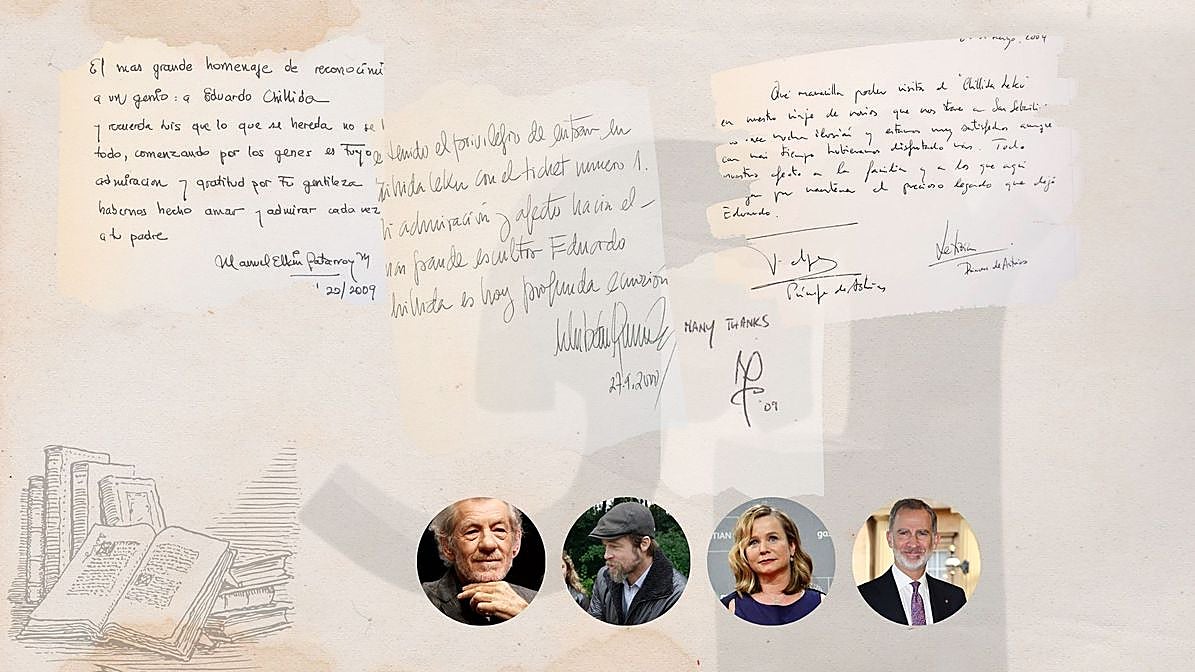 El mas grande homenaje de reconocimi
a un genio: a Eduardo Chillida
y recuerda Luis que lo que se hereda no se
todo, comenzando por los genes es tuyo
admiracion y gratitud por tu gentileza
habernos hecho amar y admirar cada vez
a tu padre
Manuel Elkin Patarroyo M
20/2009
tenido el privilegio de entrar en
Chillida Leku con el ticket numero 1.
admiración y afecto hacia el -
mas grande escultor Eduardo
Chillida es hoy profunda emoción
27.9.2000
MANY THANKS
'09
mayo, 2004
Qué maravilla poder visitar el "Chillida Leku"
en nuestro viaje de novios que nos trae a San Sebasti
hace mucha ilusión y estamos muy satisfechos aunque
con más tiempo hubiéramos disfrutado más. Todo
nuestro afecto a la familia y a los que aquí
por mantener el precioso legado que dejó
Eduardo.
Felipe
Príncipe de Asturias
Letizia
Princesa de Asturias